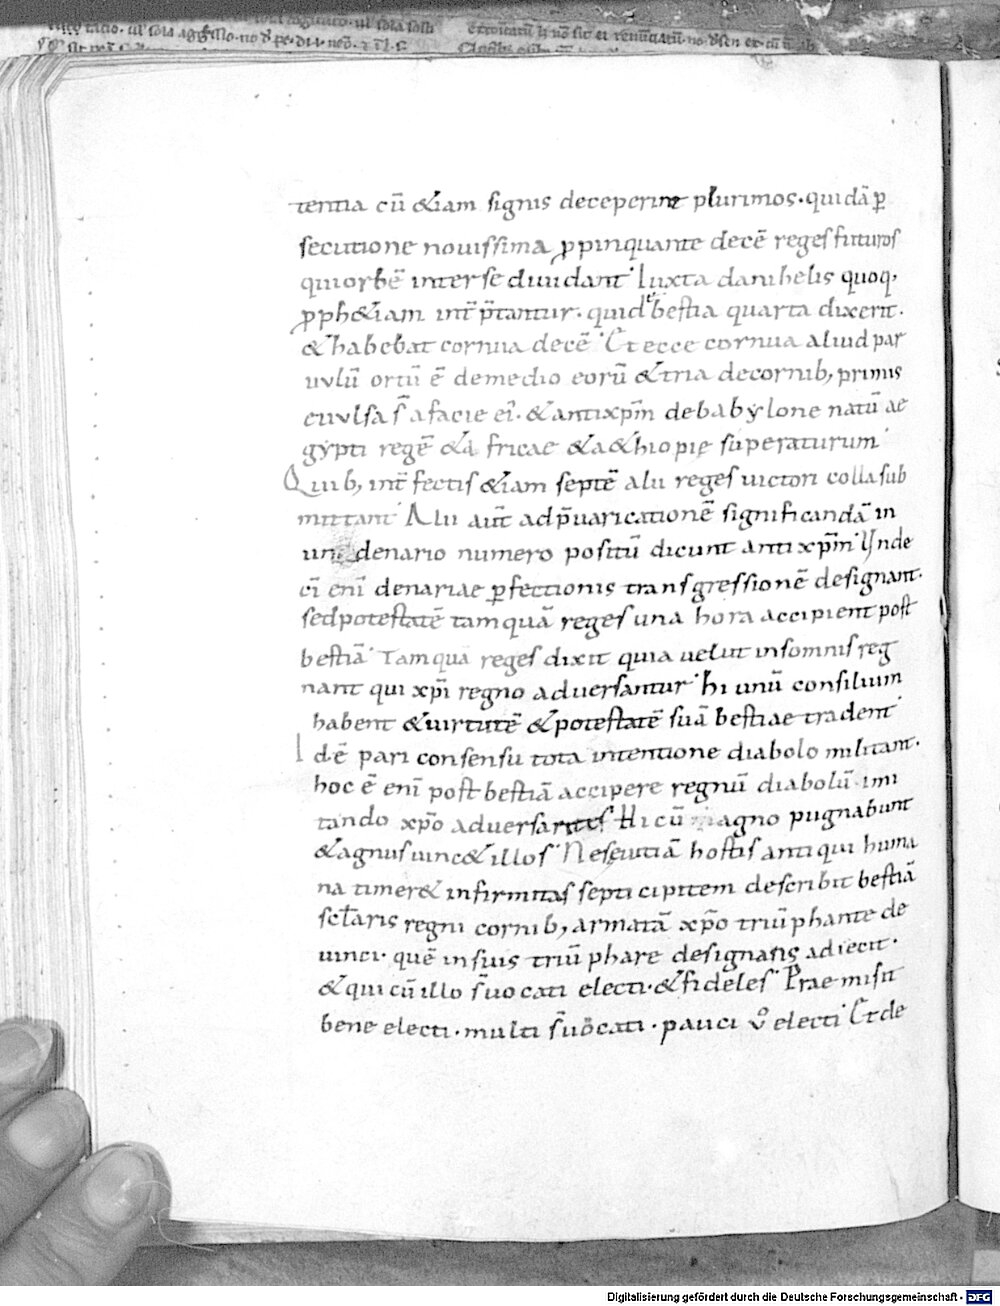 tentia cū &iam signis deceperint plurimos. quidā p̄
secutione nouissima p̱pinquante decē reges futuros
qui orbē inter se diuidant Iuxta danihelis quoq;
p̱ph&iam int̄ p̄tantur. quid ͤ bestia quarta dixerit.
& habebat cornua decē Et ecce cornua aliud par
uulū ortū ē de medio eorū & tria de cornib; primis
euulsa s̄ a facie ei'. & antixp̄m de babylone natū ae
gypti regē & africae & a&hiopię superaturum
Quib; int̄ fectis &iam septē alii reges uictori colla sub
mittant Alii aut̄ ad p̄uaricationē significandā in
denario numero positū dicunt antixp̄m Unde
cī enī denariae p̱fectionis transgressionē designant.
sed potestatē tamquā reges una hora accipient post
bestiā Tamquā reges dixit quia uelut in somnis reg
nant qui xp̄i regno aduersantur hi unū consilium
habent & uirtutē & potestatē suā bestiae tradent
Id ē pari consensu tota intentione diabolo militant.
hoc ē enī post bestiā accipere regnū diabolū imi
tando xp̄o aduersantes Hi cū magno pugnabunt
& agnus uinc& illos Ne seuitiā hostis antiqui huma
na timer& infirmitas septi cipitem describit bestiā
sc̄laris regni cornib; armatā xp̄o triūphante de
uinci. quē in suis triū phare designans adiecit.
& qui cū illo s̄ uocati electi. & fideles Praemisit
bene electi. multi s̄ uocati. pauci v̊ electi Et de
Digitalisierung gefördert durch die Deutsche Forschungsgemeinschaft - DFG